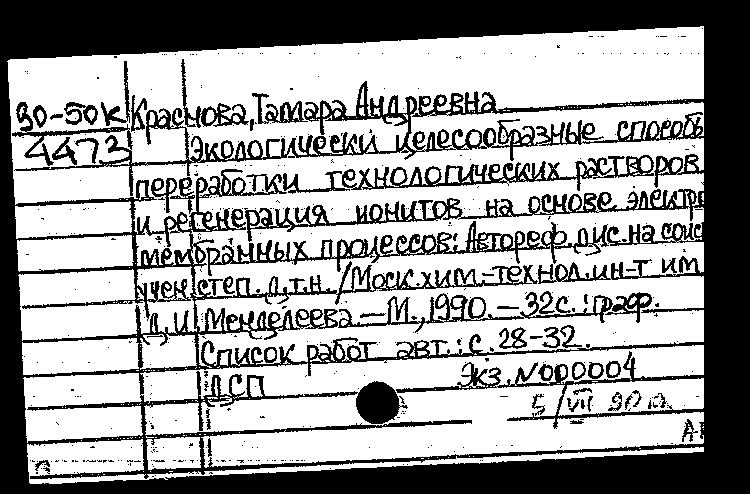 90-50к Краснова, Тамара Андреевна
4473 Экологически целесообразные способы
переработки технологических растворов
и регенерация ионитов на основе электро
мембранных процессов: Автореф. дис. на соиск
учен. степ. д.т.н. / Моск. хим.-технол. ин-т им.
Д.И. Менделеева. — М., 1990. — 32с. : граф.
Список работ авт.: с. 28-32.
ДСП Экз. N000004
5/VII 90